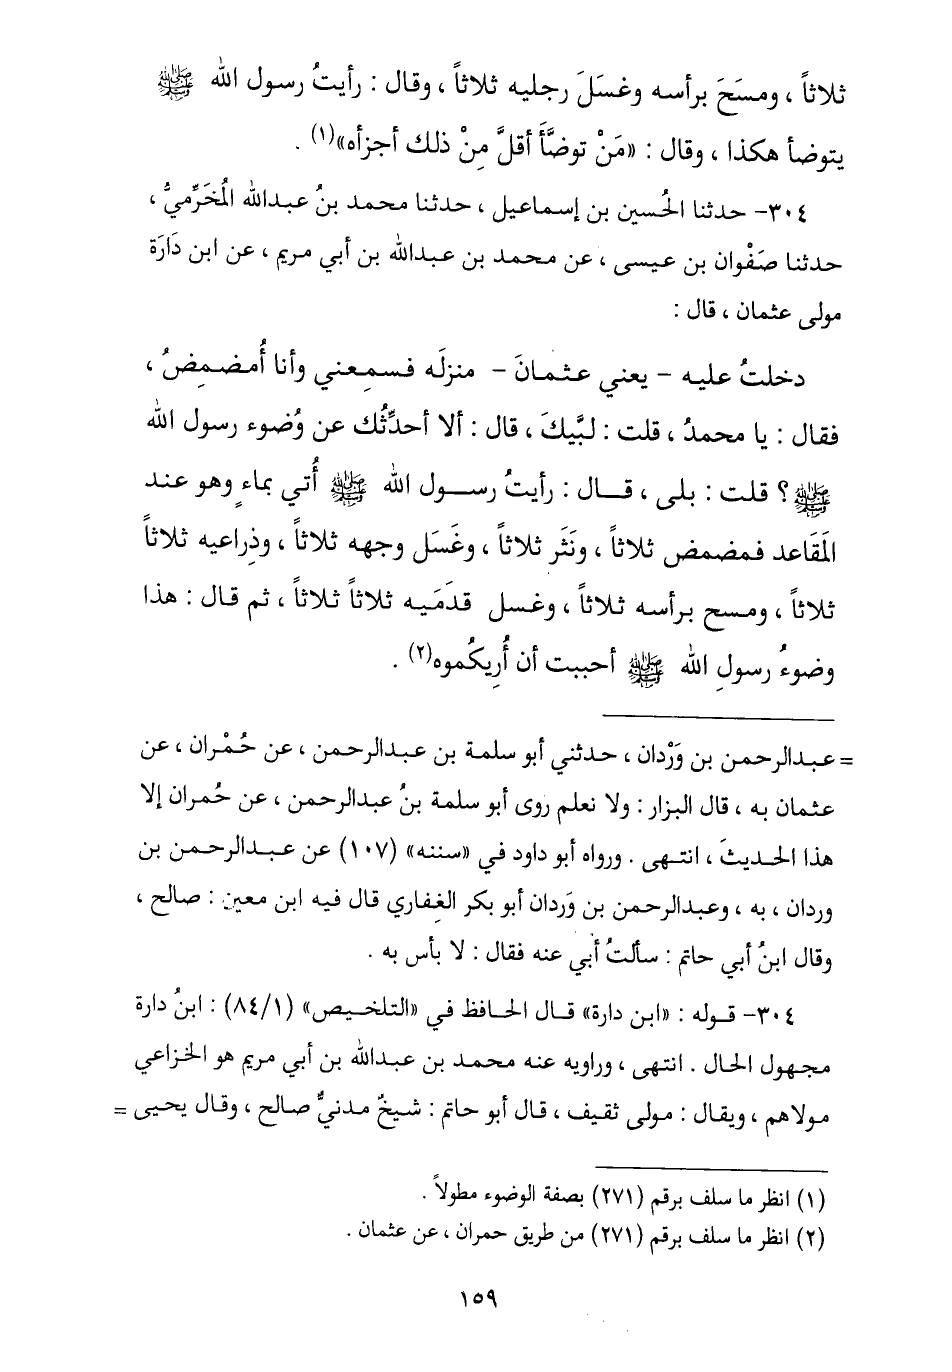 ثلاثاً ، ومسَحَ برأسه وغسَلَ رجليه ثلاثاً ، وقال : رأيتُ رسول الله ﷺ
يتوضأ هكذا ، وقال : «مَنْ توضَّأَ أقلَّ مِنْ ذلك أجزأه»(١) .
٣٠٤- حدثنا الحُسين بن إسماعيل ، حدثنا محمد بنُ عبدالله المُخَرِّميُّ ،
حدثنا صَفْوان بن عيسى ، عن محمد بن عبدالله بن أبي مريم ، عن ابن دَارَة
مولى عثمان ، قال :
دخلتُ عليه - يعني عثمانَ - منزلَه فسمِعني وأنا أُمضمِضُ ،
فقال : يا محمدُ ، قلت : لبَّيكَ ، قال : ألا أحدِّثُك عن وُضوء رسول الله
ﷺ؟ قلت : بلى ، قال : رأيتُ رسول الله ﷺ أُتي بماءٍ وهو عند
المَقَاعد فمضمض ثلاثاً ، ونَثَر ثلاثاً ، وغَسَل وجهه ثلاثاً ، وذِراعيه ثلاثاً
ثلاثاً ، ومسح برأسه ثلاثاً ، وغسل قدَميه ثلاثاً ثلاثاً ، ثم قال : هذا
وضوءُ رسولِ الله ﷺ أحببت أن أُرِيكُموه(٢) .
= عبدالرحمن بن وَرْدان ، حدثني أبو سلمة بن عبدالرحمن ، عن حُمْران ، عن
عثمان به ، قال البزار : ولا نعلم روى أبو سلمة بنُ عبدالرحمن ، عن حُمران إلا
هذا الحديثَ ، انتهى . ورواه أبو داود في «سننه» (١٠٧) عن عبدالرحمن بن
وردان ، به ، وعبدالرحمن بن وَردان أبو بكر الغِفاري قال فيه ابن معين : صالح ،
وقال ابنُ أبي حاتم : سألتُ أبي عنه فقال : لا بأس به .
٣٠٤- قوله : «ابن دارة» قال الحافظ في «التلخيص» (٨٤/١) : ابنُ دارة
مجهول الحال . انتهى ، وراويه عنه محمد بن عبدالله بن أبي مريم هو الخزاعي
مولاهم ، ويقال : مولى ثقيف ، قال أبو حاتم : شيخٌ مدنيٌّ صالح ، وقال يحيى =
(١) انظر ما سلف برقم (٢٧١) بصفة الوضوء مطولاً .
(٢) انظر ما سلف برقم (٢٧١) من طريق حمران ، عن عثمان .
١٥٩